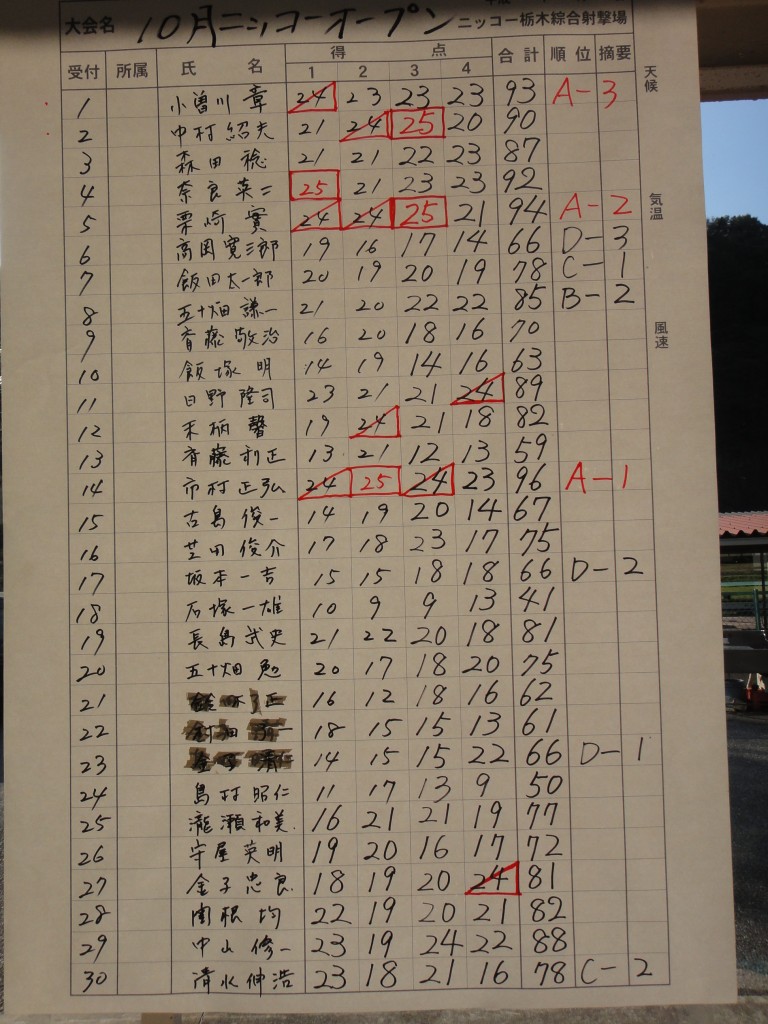 大会名 10月ニッコーオープン ニッコー栃木綜合射撃場
受付 所属 氏名 得点 1 2 3 4 合計 順位 摘要
天候
気温
風速
1 小曽川 章 24 23 23 23 93 A-3
2 中村 紹夫 21 24 25 20 90
3 森田 稔 21 21 22 23 87
4 奈良 英二 25 21 23 23 92
5 栗崎 實 24 24 25 21 94 A-2
6 高岡 寛三郎 19 16 17 14 66 D-3
7 飯田 太一郎 20 19 20 19 78 C-1
8 五十畑 謙一 21 20 22 22 85 B-2
9 斉藤 敬治 16 20 18 16 70
10 飯塚 明 14 19 14 16 63
11 日野 隆司 23 21 21 24 89
12 末柄 馨 19 24 21 18 82
13 斉藤 利正 13 21 12 13 59
14 市村 正弘 24 25 24 23 96 A-1
15 古島 俊一 14 19 20 14 67
16 芝田 俊介 17 18 23 17 75
17 坂本 一吉 15 15 18 18 66 D-2
18 石塚 一雄 10 9 9 13 41
19 長島 武史 21 22 20 18 81
20 五十畑 勉 20 17 18 20 75
21 16 12 18 16 62
22 18 15 15 13 61
23 14 15 15 22 66 D-1
24 島村 昭仁 11 17 13 9 50
25 瀧瀬 和美 16 21 21 19 77
26 守屋 英明 19 20 16 17 72
27 金子 忠良 18 19 20 24 81
28 関根 均 22 19 20 21 82
29 中山 修一 23 19 24 22 88
30 清水 伸浩 23 18 21 16 78 C-2